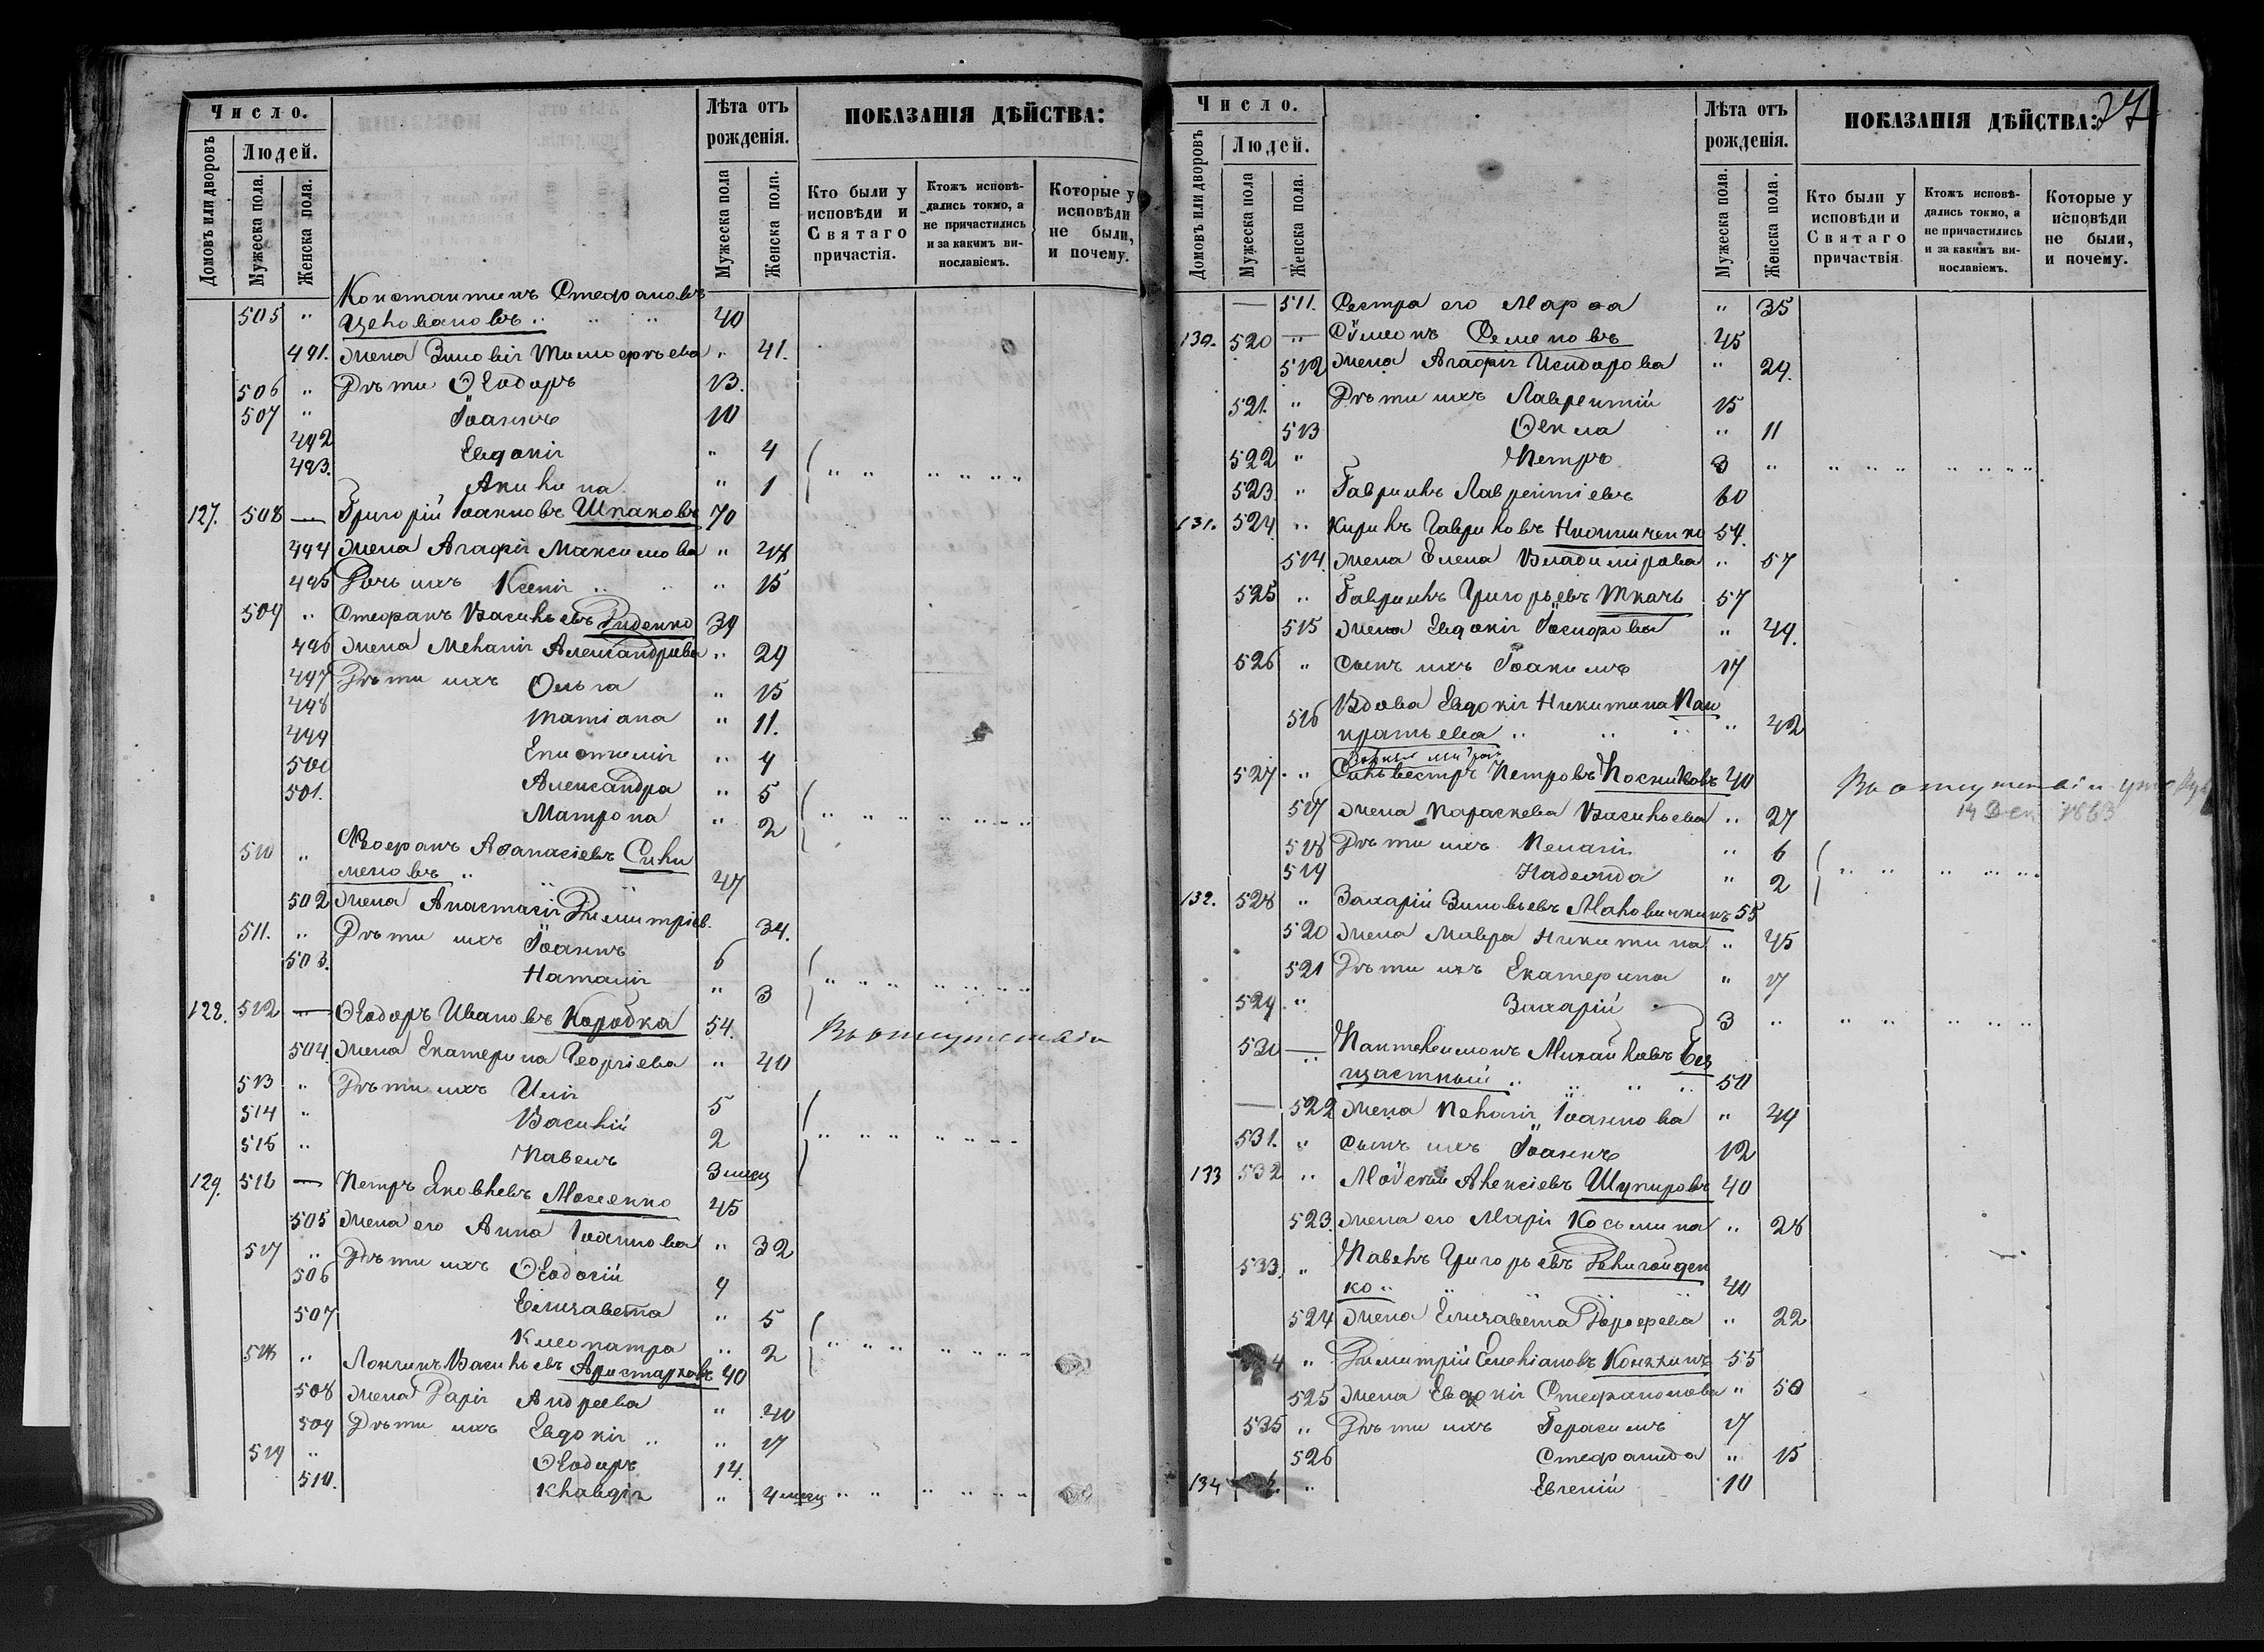 Число.
Домовъ или дворовъ
Людей.
Мужеска пола.
Женска пола.
Лѣта отъ рожденія.
Мужеска пола
Женска пола.
ПОКАЗАНІЯ ДѢЙСТВА:
Кто были у исповѣди и Святаго причастія.
Ктожъ исповѣдались токмо, а не причастились и за какимъ винославіемъ.
Которые у исповѣди не были, и почему.
Константинъ Стефановъ
505 "
40
491. жена Зиновія Тимофеева " 41.
506 " Дѣти Ѳеодоръ 13.
507 " Іоаннъ 10
492 Евдокія " 4
493. Акилина " 1
127. 508 — Григорій Іоанновъ Шпаковъ 70
494 жена Агафія Максимова "
495 Дочь ихъ Ксенія " 15
509 " Стефанъ Васильевъ Руденко 39
496 жена Меланія Александрова " 29
497 Дѣти ихъ Ольга " 15
498 Татіана " 11.
499 Епистимія " 9
500 Александра " 5
501. Матрона " 2
510 " Аѳанасіевъ Сили
меновъ " 47
502 жена Анастасія Димитріев. 34.
511. " Дѣти ихъ Іоаннъ 6
503. Наталія " 3
128. 512 — Ѳеодоръ Ивановъ Коробка 54. Въ отсутствіи
504. жена Екатерина Георгіева " 40
513 " Дѣти ихъ Илія 5
514 " Василій 2
515 " Павелъ 3 месец
129. 516 — Петръ Яковлевъ Мосенко 45
505 жена его Анна Іоаннова " 32
517 " Дѣти ихъ Ѳеодосій 9
506 Елизавета " 5
507 Клеопатра " 2
518 " Лонгинъ Васильевъ Аристарховъ 40
508 жена Дарія Андреева " 40
509 Дѣти ихъ Евдокія " 17
519 " Ѳеодоръ 14.
510. Клавдія " 4 месец
27
Число.
Домовъ или дворовъ
Людей.
Мужеска пола
Женска пола.
Лѣта отъ рожденія.
Мужеска пола.
Женска пола.
ПОКАЗАНІЯ ДѢЙСТВА:
Кто были у исповѣди и Святаго причаствія
Ктожъ исповѣдались токмо, а не причастились и за какимъ винославіемъ.
Которые у исповѣди не были, и почему.
— 511. Сестра его Марѳа " 35
130. 520 — Сѵмеонъ Семеновъ 45
512 жена Агафія Исидорова " 29.
521. " Дѣти ихъ Лаврентій 15
513 Ѳекла " 11
522 " Петръ 3 "
523. " Гавріилъ Лаврентіевъ 60
131. 524 " Кирилъ Гавриловъ 54.
514. жена Елена Владимірова " 57
525 " Гавріилъ Григорьевъ Ткачъ 57
515 жена Евдокія Іосифова " 49.
526 " Сынъ ихъ Іоакимъ 17
516 Вдова Евдокія Никитина Пан
кратьева " 42
527 " Сильвестръ Петровъ Посниковъ 40 Въ отсутствіи
14 Дек 1863
517 жена Параскева Васильева " 27
518 Дѣти ихъ Пелагія " 6
519 Надежда " 2
132. 528 " Захарій Зиновьевъ Маловичкинъ 55
520 жена Мавра Никитина " 45
521 Дѣти ихъ Екатерина " 17
529 " Захарій 3 "
530 — Пантелеимонъ Михайловъ Без
щастный " 50
— 522 жена Пелагія Іоаннова " 49
531. " Сынъ ихъ Іоаннъ 12
133 532 " Моѵсей Алексіевъ Шупировъ 40
523. жена его Марія Косьмина " 28
533. " Павелъ Григорьевъ
ко " 40
524 жена Елизавета Дороѳеева " 22
" Димитрій Емеліановъ Конкинъ 55
525 жена Евдокія Стефанонова " 50
535 " Дѣти ихъ Герасимъ 17
526 Стефанида " 15
134 " Евгеній 10